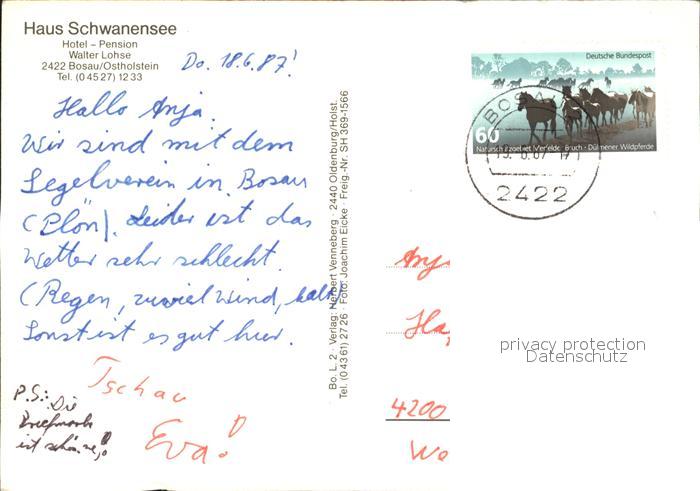 Haus Schwanensee
Hotel – Pension
Walter Lohse
2422 Bosau/Ostholstein
Tel. (0 45 27) 12 33
Do. 18.6.87!
Hallo Anja.
Wir sind mit dem
Segelverein in Bosau
(Plön). Leider ist das
Wetter sehr schlecht.
(Regen, zuviel Wind, kalt
Sonst ist es gut hier.
Tschau
Eva!
P.S.: Die
Briefmark
ist
Bo. L. 2 · Verlag: Herbert Venneberg · 2440 Oldenburg/Holst.
Tel. (0 43 61) 27 26 · Foto: Joachim Eicke · Freig.-Nr. SH 369-1566
Deutsche Bundespost
60
Naturschutzgebiet Merfelder Bruch · Dülmener Wildpferde
BOSAU
2422
Anja
Ha
4200
We
privacy protection
Datenschutz